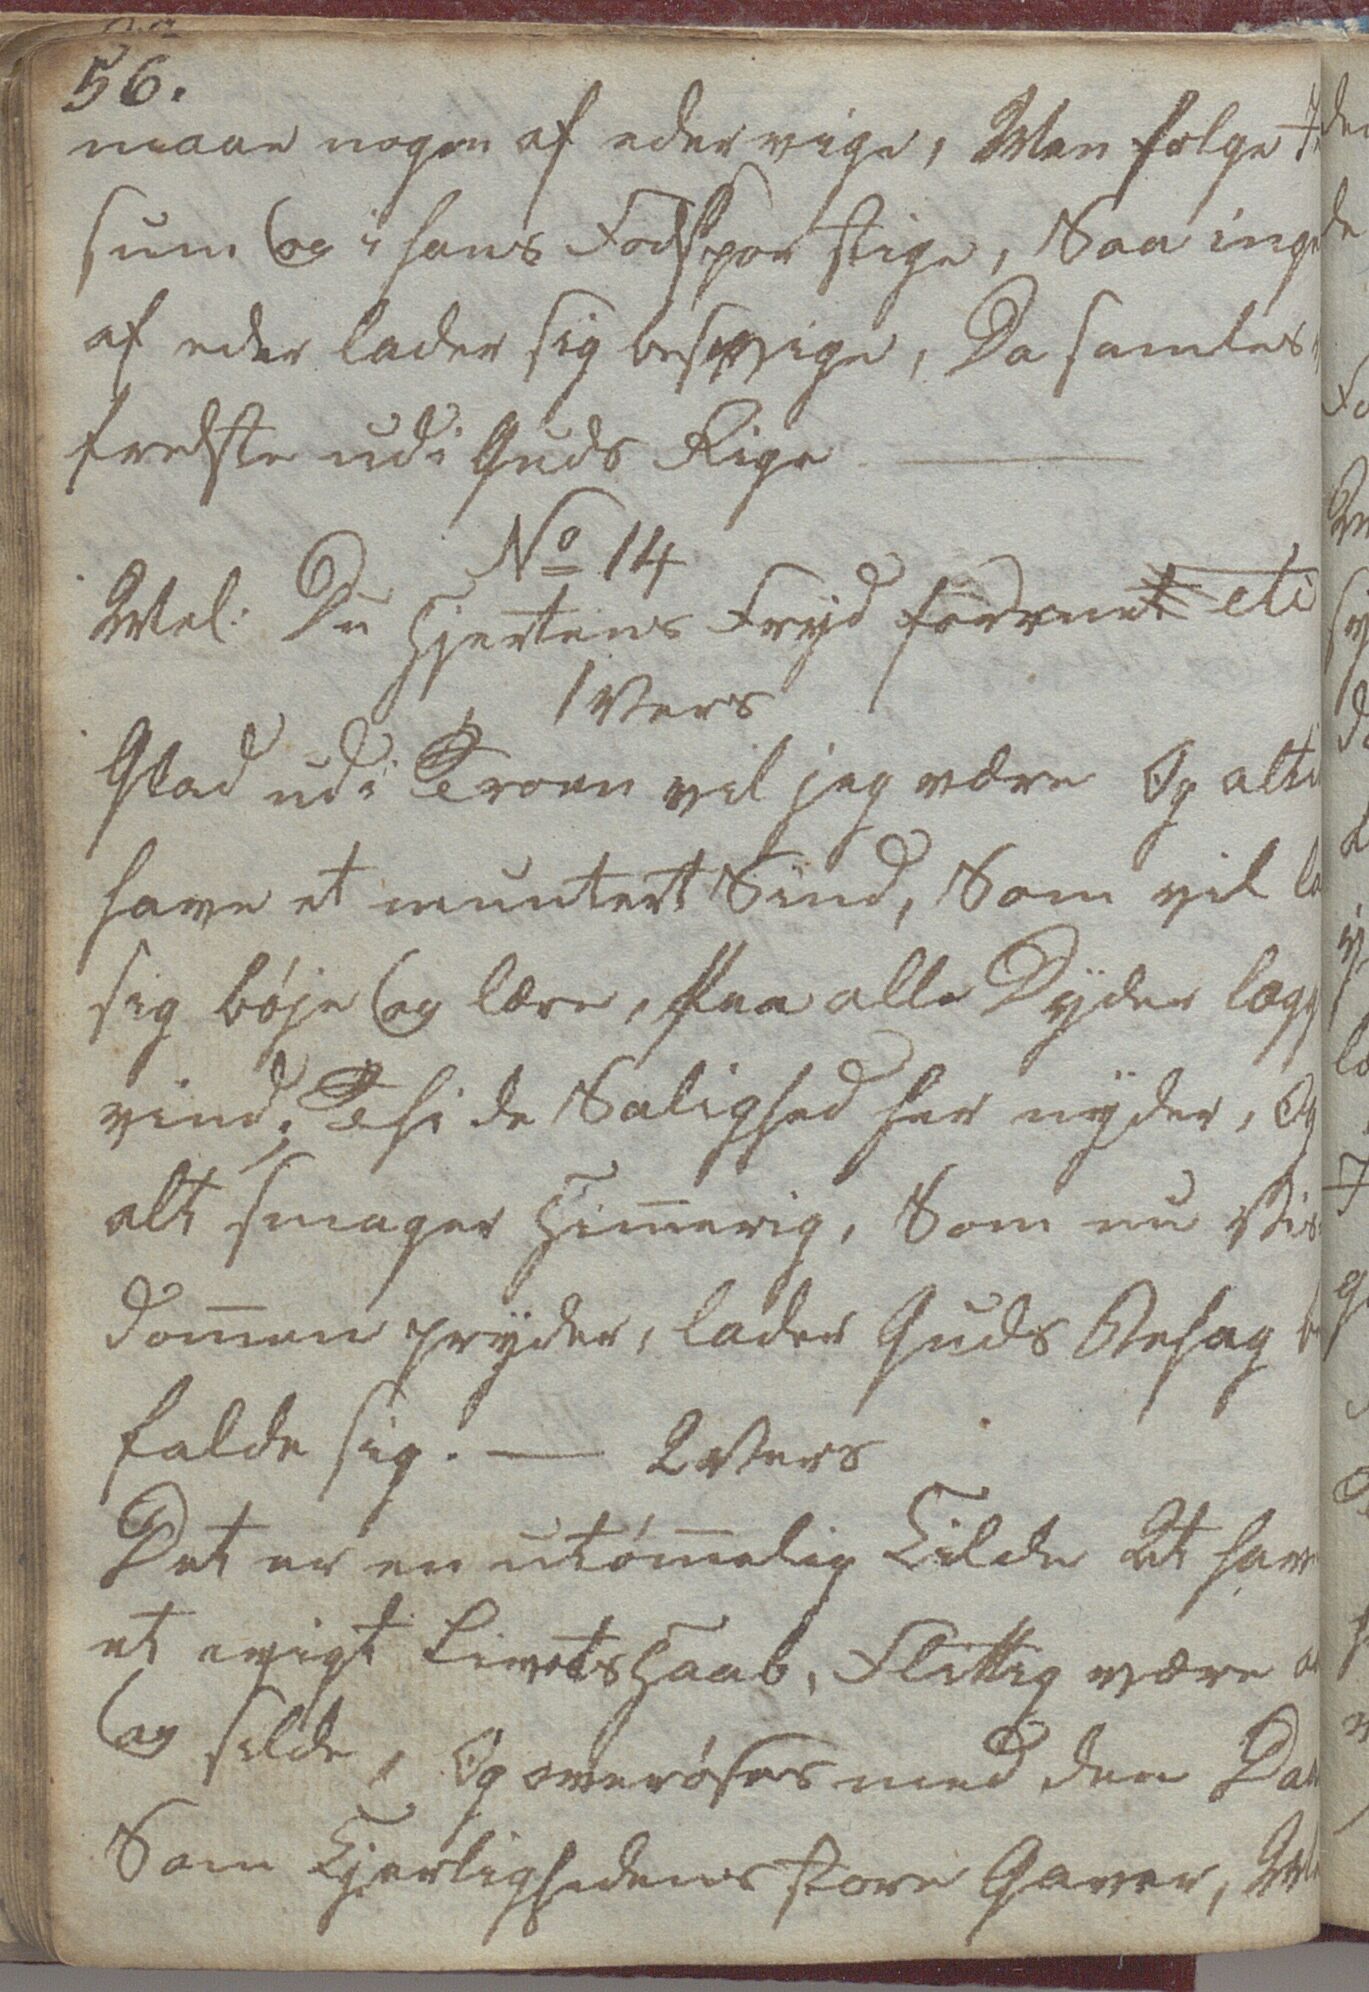 56.
maae nogen af eder vige, Men følge Je
sum og i hans Fodspor stige, Saa inge
af eder lader sig besvige, Da samles
frelste udi Guds Rige
No 14
Mel: Du Hjertens Fryd forvent etc
1 Vers
Glad udi Troen vil jeg være Og alti
have et muntert Sind, Som vil la
sig bøje og lære, Paa alle Dyder lægg
vind; Thi de Salighed her nyder, Og
alt smager Him̅erig, Som nu Vis
dom̅en pryder, lader Guds Behag be
falde sig. — 2 Vers
Det er en utøm̅elig Kilde At have
et evigt Livets Haab, Flittig være
og silde, Og overøses med den Daa
Som Kjerlighedens store Gaver,